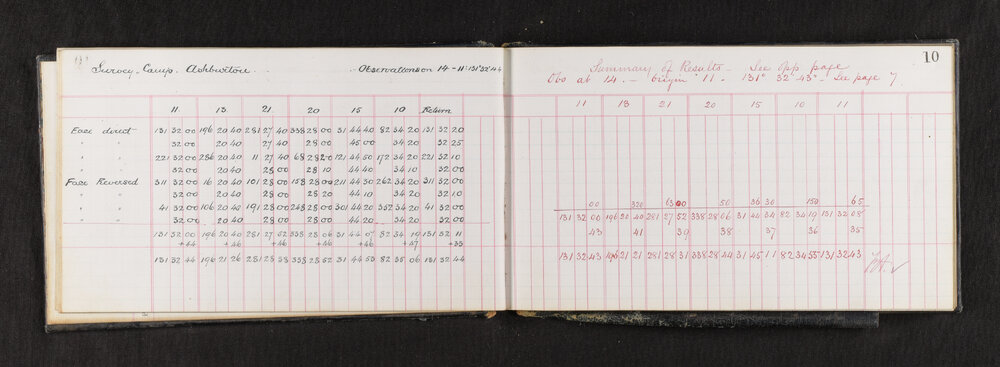 Survey Camp. Ashburton. Observations on 14 - 11: 131° 32' 44
11 13 21 20 15 10 Return
Face direct 131 32 00 196 20 40 281 27 40 338 28 00 31 44 40 82 34 20 131 32 20
" " 32 00 20 40 27 40 28 00 45 00 34 20 32 25
" " 221 32 00 286 20 40 11 27 40 68 28 20 121 44 50 172 34 20 221 32 10
" " 32 00 20 40 28 00 28 10 44 40 34 10 32 00
Face Reversed 311 32 00 16 20 40 101 28 00 158 28 00 211 44 30 262 34 20 311 32 00
" " 32 00 20 40 28 00 28 20 44 10 34 20 32 10
" " 41 32 00 106 20 42 191 28 00 248 28 00 301 44 20 352 34 20 41 32 00
" " 32 00 20 40 28 00 28 20 44 20 34 20 32 00
131 32 00 196 20 40 281 27 52 338 28 06 31 44 07 82 34 19 131 32 11
+44 +46 +46 +46 +46 +47 +33
131 32 44 196 21 26 281 28 38 338 28 52 31 44 53 82 35 06 131 32 44
10
Summary of Results. See opp page
Obs at 14. - Origin 11. - 131° 32' 43" - See page 7.
11 13 21 20 15 10 11
00 320 50 150 65
131 32 00 196 20 40 281 27 52 338 28 06 31 44 34 82 34 19 131 32 08
43 41 39 38 37 36 35
131 32 43 196 21 21 281 28 31 338 28 44 31 45 11 82 34 55 131 32 43